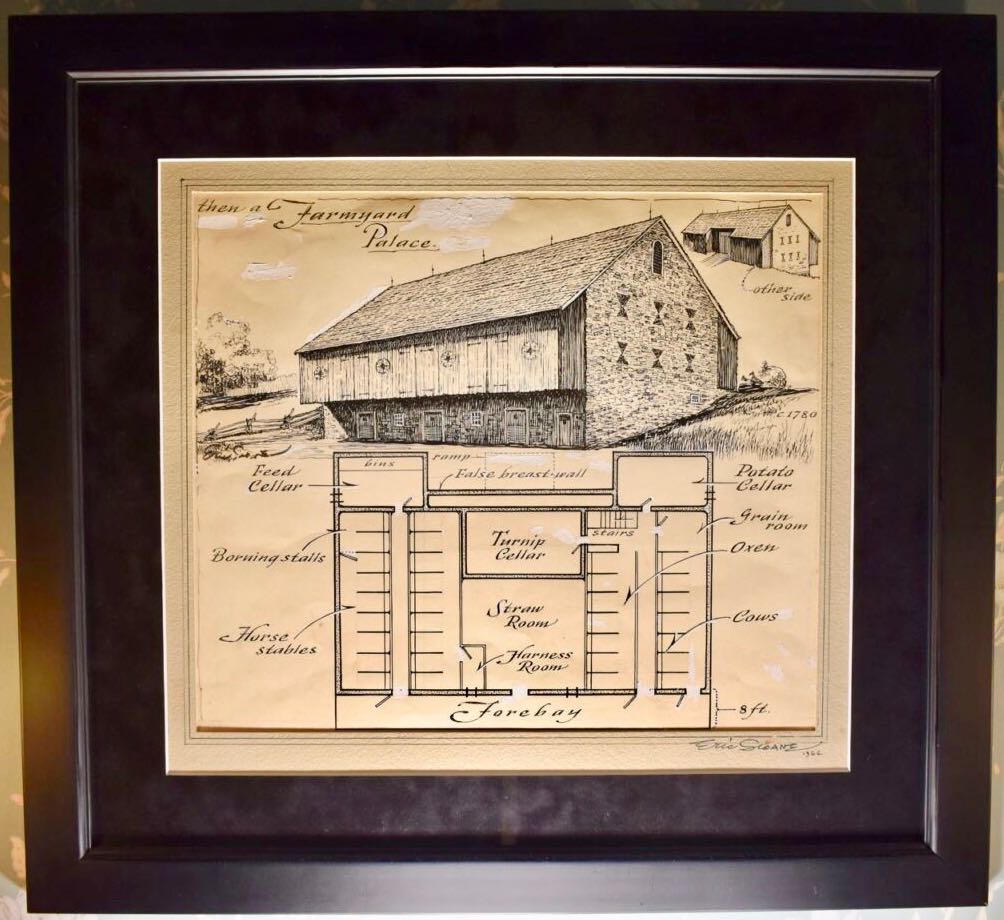 then a
Farmyard
Palace.
other
side
c 1780
Feed
Cellar
bins
ramp
False breast-wall
Potato
Cellar
Borning stalls
Turnip
Cellar
stairs
Grain
room
Oxen
Horse
stables
Straw
Room
Harness
Room
Cows
Forebay
8 ft.
Eric Sloane